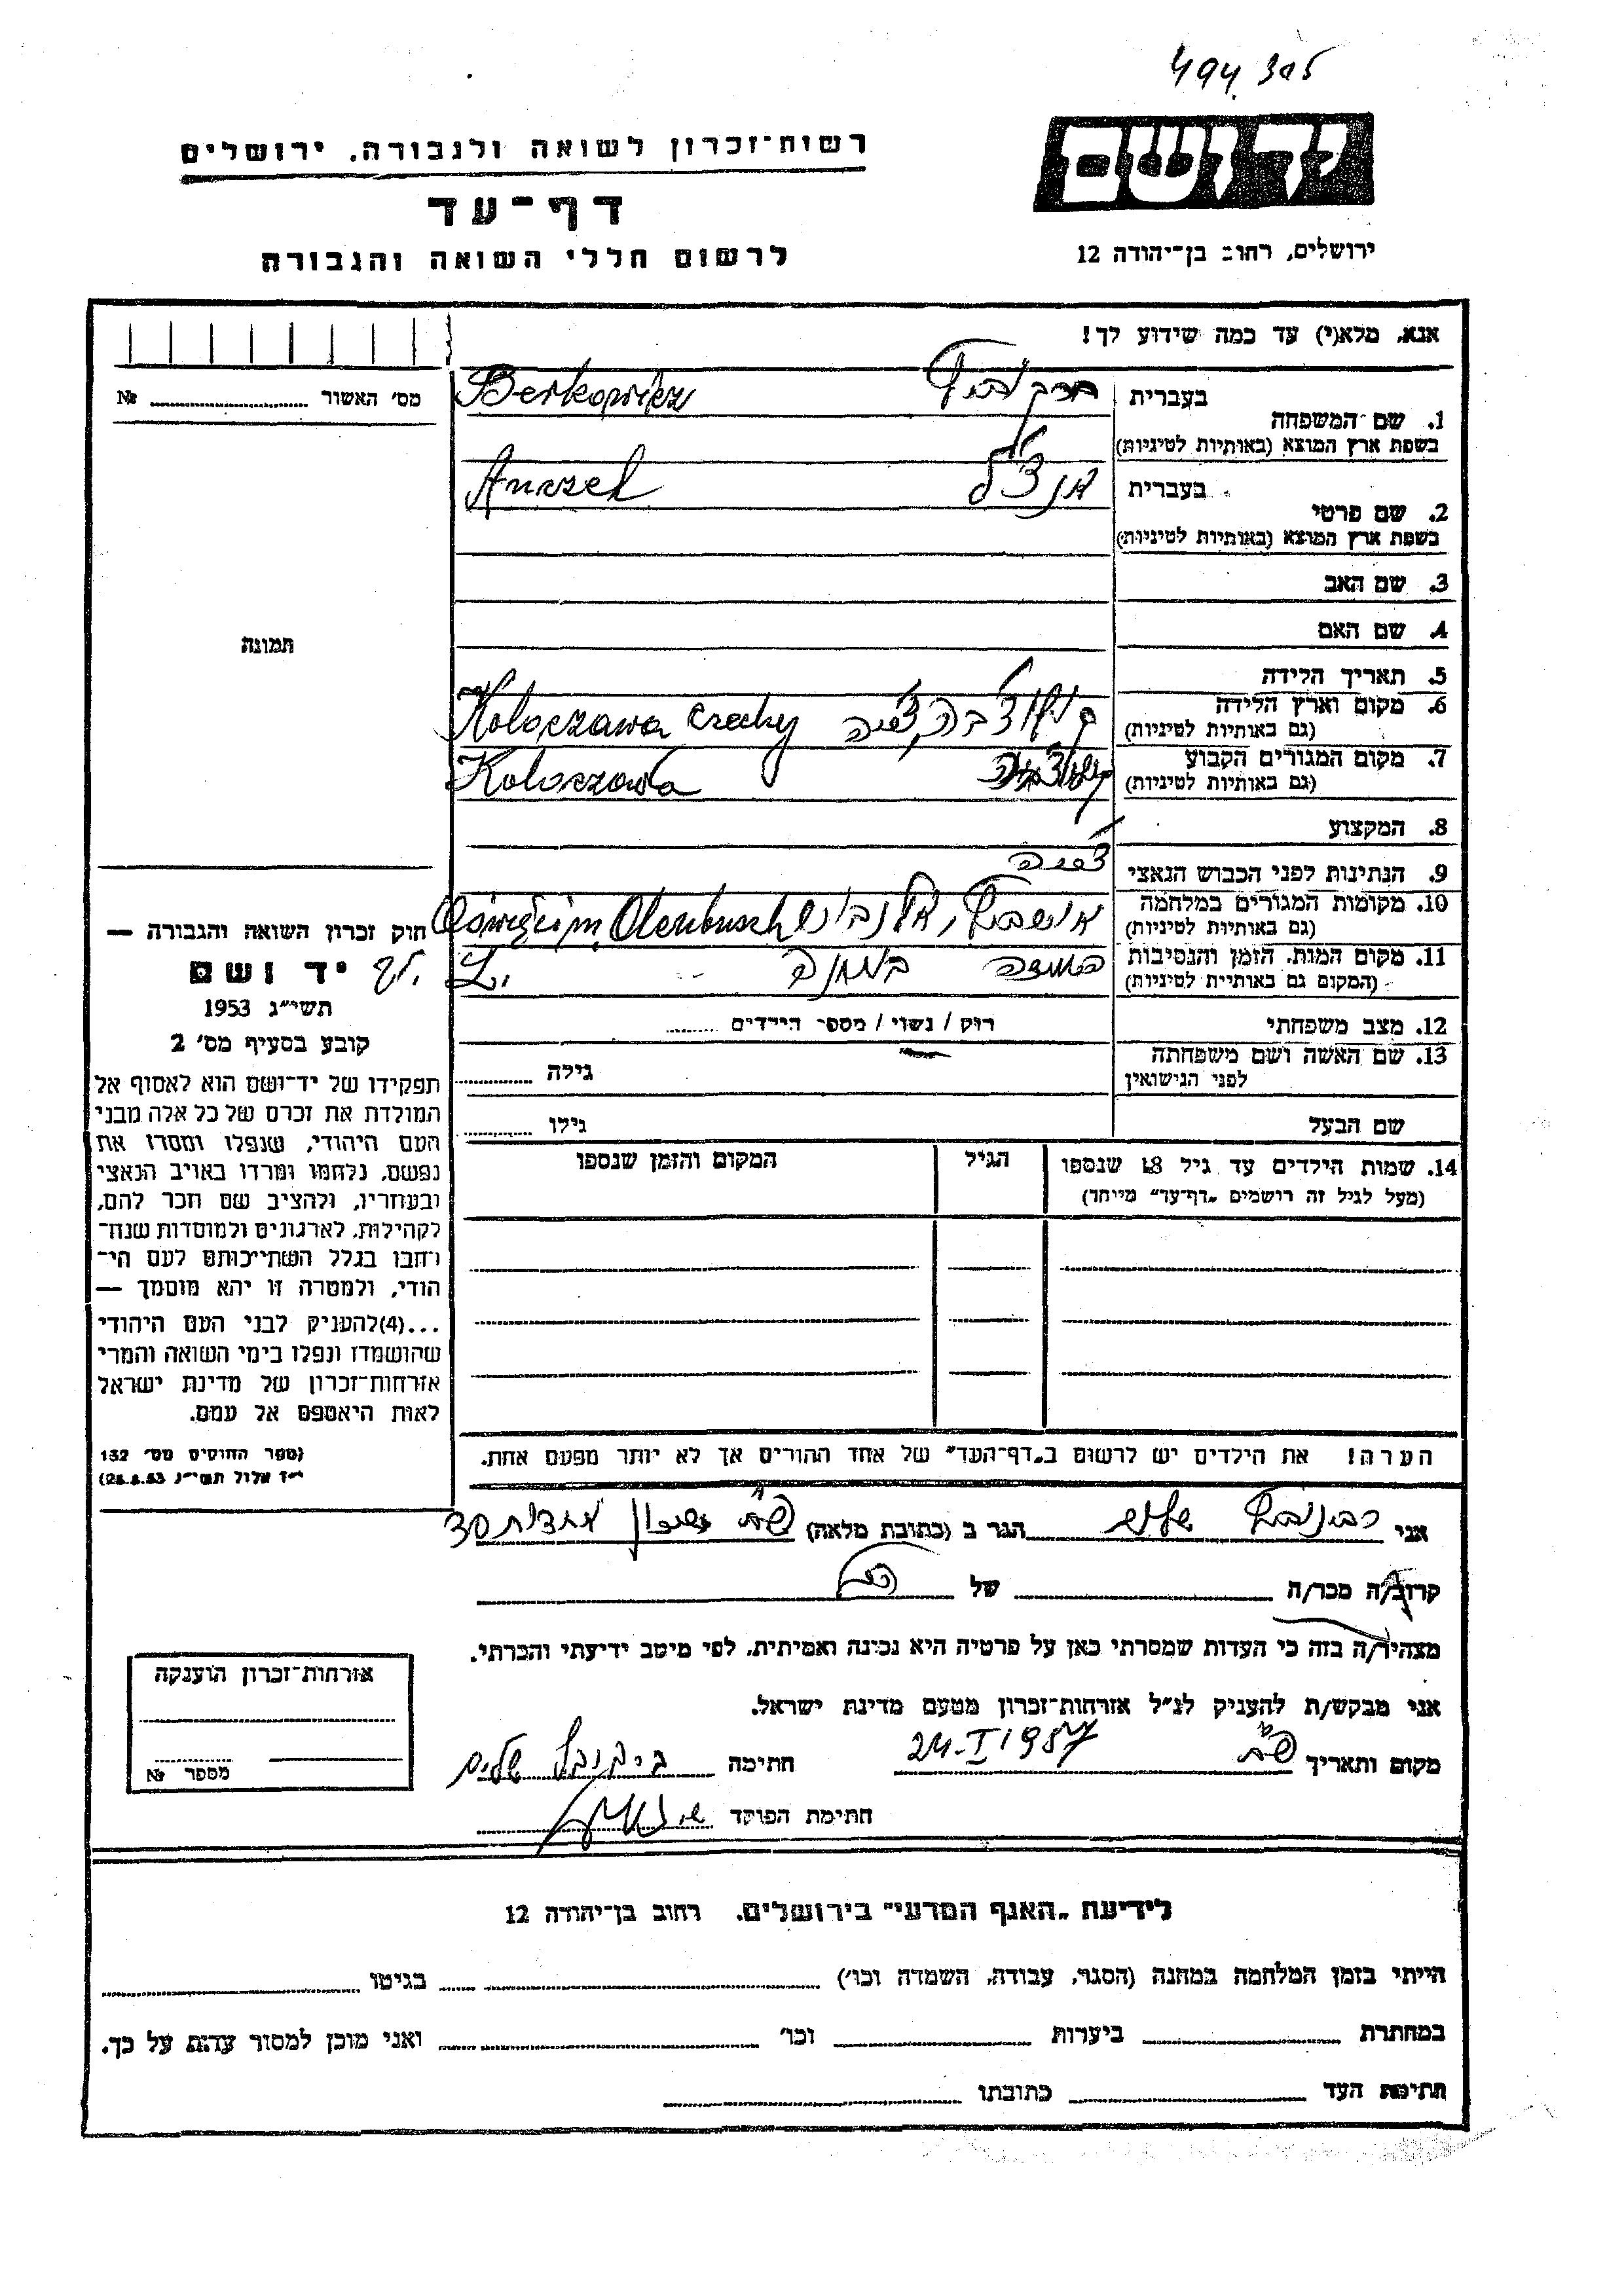 494 305
רשות־זכרון לשואה ולגבורה, ירושלים
יד ושם
דף־עד
לרשום חללי השואה והגבורה
ירושלים, רחוב בן־יהודה 12
אנא, מלא(י) עד כמה שידוע לך!
מס׳ האשור № ........
בעברית ברקוביץ Berkowicz
1. שם המשפחה
בשפת ארץ המוצא (באותיות לטיניות)
בעברית אנצ׳ל Anczel
2. שם פרטי
בשפת ארץ המוצא (באותיות לטיניות)
3. שם האב
4. שם האם
תמונה
5. תאריך הלידה
6. מקום וארץ הלידה צ׳כיה Koloczawa Czechy
(גם באותיות לטיניות)
7. מקום המגורים הקבוע Koloczawa
(גם באותיות לטיניות)
8. המקצוע
9. הנתינות לפני הכבוש הנאצי צ׳כיה
10. מקומות המגורים במלחמה Oświęcim, Olenbusch
(גם באותיות לטיניות)
11. מקום המות, הזמן והנסיבות במחנה
(המקום גם באותיות לטיניות)
12. מצב משפחתי רווק / נשוי / מספר הילדים ........
13. שם האשה ושם משפחתה גילה ........
לפני הנישואין
שם הבעל גילו ........
14. שמות הילדים עד גיל 18 שנספו הגיל המקום והזמן שנספו
(מעל לגיל זה רושמים „דף־עד” מייחד)
הערה! את הילדים יש לרשום ב„דף־העד” של אחד ההורים אך לא יותר מפעם אחת.
חוק זכרון השואה והגבורה —
יד ושם
תשי״ג 1953
קובע בסעיף מס׳ 2
תפקידו של יד־ושם הוא לאסוף אל
המולדת את זכרם של כל אלה מבני
העם היהודי, שנפלו ומסרו את
נפשם, נלחמו ומרדו באויב הנאצי
ובעוזריו, ולהציב שם וזכר להם,
לקהילות, לארגונים ולמוסדות שנח־
רבו בגלל השתייכותם לעם הי־
הודי, ולמטרה זו יהא מוסמך —
...(4)להעניק לבני העם היהודי
שהושמדו ונפלו בימי השואה והמרי
אזרחות־זכרון של מדינת ישראל
לאות היאספם אל עמם.
(ספר החוקים מס׳ 132
י״ז אלול תשי״ג 28.8.53)
אני הגר ב (כתובת מלאה)
קרוב/ה מכר/ה של
מצהיר/ה בזה כי העדות שמסרתי כאן על פרטיה היא נכונה ואמיתית, לפי מיטב ידיעתי והכרתי.
אני מבקש/ת להעניק לנ״ל אזרחות־זכרון מטעם מדינת ישראל.
מקום ותאריך 24.I 1957 חתימה
חתימת הפוקד
אזרחות־זכרון הוענקה
מספר №
לידיעת „האגף המדעי” בירושלים, רחוב בן־יהודה 12
הייתי בזמן המלחמה במחנה (הסגר, עבודה, השמדה וכו׳) ........ בגיטו ........
במחתרת ........ ביערות ........ וכו׳ ........ ואני מוכן למסור עדות על כך.
חתימת העד ........ כתובתו ........